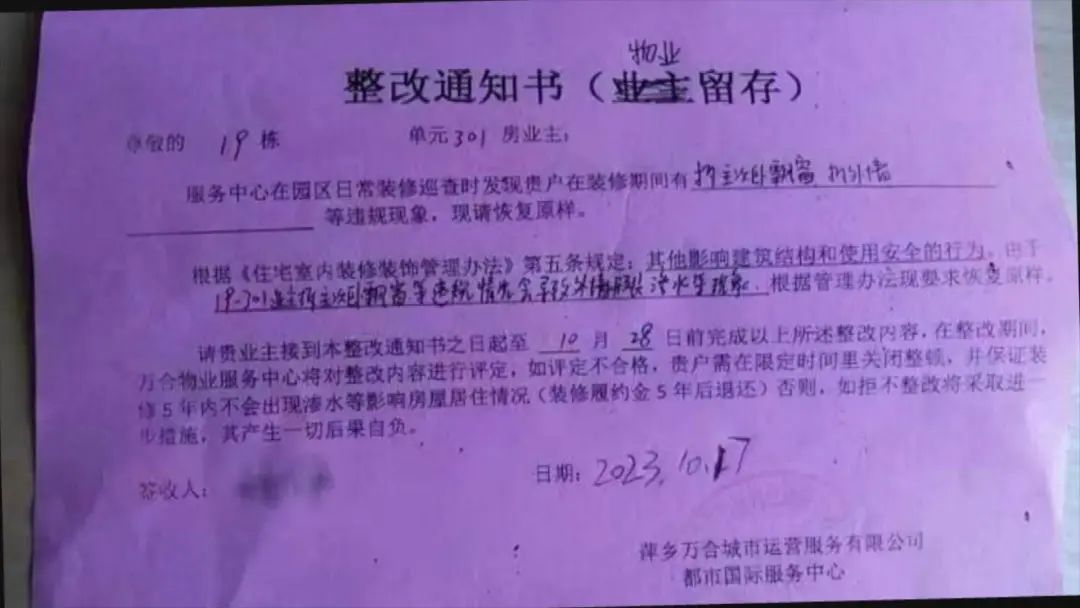 物业
整改通知书（业主留存）
尊敬的 19 栋 单元301 房业主：
服务中心在园区日常装修巡查时发现贵户在装修期间有 拆主次卧飘窗 拆外墙
等违规现象，现请恢复原样。
根据《住宅室内装修装饰管理办法》第五条规定：其他影响建筑结构和使用安全的行为。由于
19-301业主拆主次卧飘窗等违规情况会导致外墙 渗水等现象，根据管理办法现要求恢复原样。
请贵业主接到本整改通知书之日起至 10 月 28 日前完成以上所述整改内容，在整改期间，
万合物业服务中心将对整改内容进行评定，如评定不合格，贵户需在限定时间里关闭整顿，并保证装
修5年内不会出现渗水等影响房屋居住情况（装修履约金5年后退还）否则，如拒不整改将采取进一
步措施，其产生一切后果自负。
签收人：
日期：2023.10.17
萍乡万合城市运营服务有限公司
都市国际服务中心